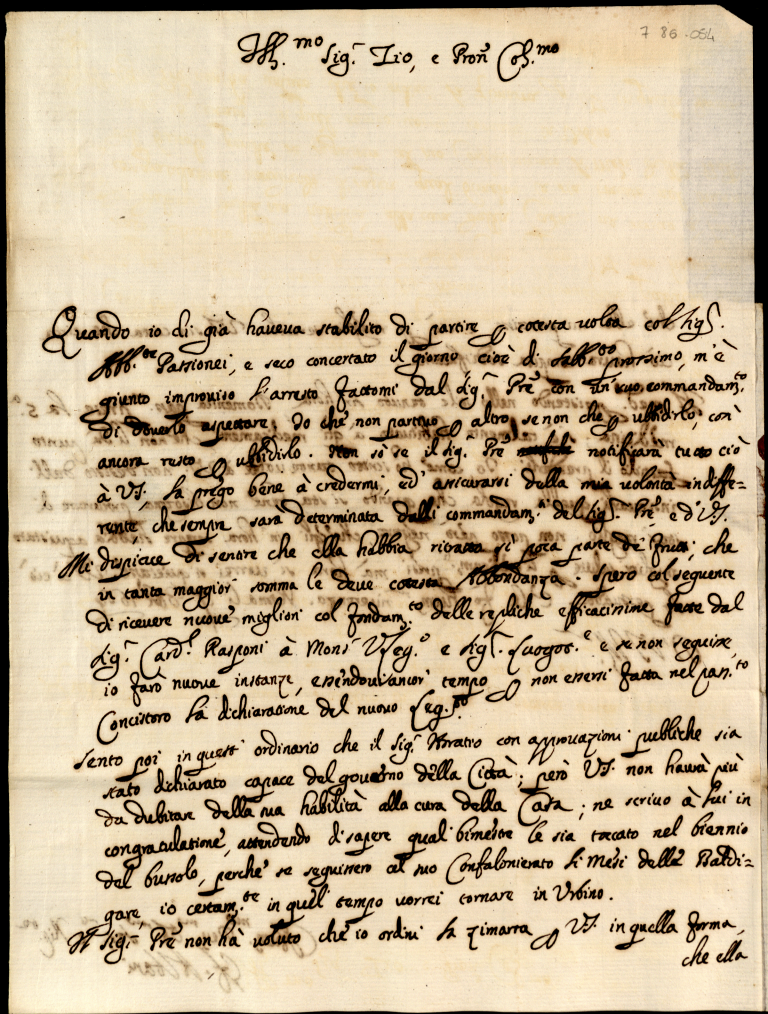 7 86-054
Ill.mo Sig.r Zio, e Pron Col.mo
Quando io di già haueua stabilito di partire p cotesta volta col Sig.r
Abb.te Passionei, e seco concertato il giorno cioè di Sabb.to prossimo, m'è
giunto improuiso l'arresto fattomi dal Sig.r Pre con un suo commandam.to
di douerlo aspettare. Io che non partiuo p altro se non che p ubbidirlo, così
ancora resto p ubbidirlo. Non sò se il Sig.r Pre notificarà tutto ciò
à VS., la prego bene à credermi, ed' assicurarsi della mia volontà indiffe=
rente, che sempre sarà determinata dalli commandam.ti del Sig.r Pre, e di VS.
Mi dispiace di sentire che ella habbia ritratta sì poca parte de' frutti, che
in tanta maggior somma le deue cotesta Abbondanza. Spero col seguente
di riceuere nuoue migliori col fondam.to delle repliche efficacissime fatte dal
Sig.r Card.l Rasponi à Mons.r Vseg.o e Sig.r Luogot.e e se non seguisse,
io farò nuoue instanze, essendoui ancor' tempo p non essersi fatta nel pass.to
Concistoro la dichiaratione del nuovo Leg.to
Sento poi in quest' ordinario che il Sig.r Horatio con approuazioni pubbliche sia
stato dichiarato capace del gouerno della Città; però VS. non haurà più
da dubitar della sua habilità alla cura della Casa; ne scriuo à lui in
congratulatione, attendendo di sapere qual bimestre le sia toccato nel biennio
del bussolo, perche se seguissero col suo Confalonierato li Mesi delle Baldi=
gare, io certam.te in quel tempo vorrei tornare in Vrbino.
Il Sig.r Pre non hà voluto che io ordini la zimarra p VS. in quella forma,
che ella